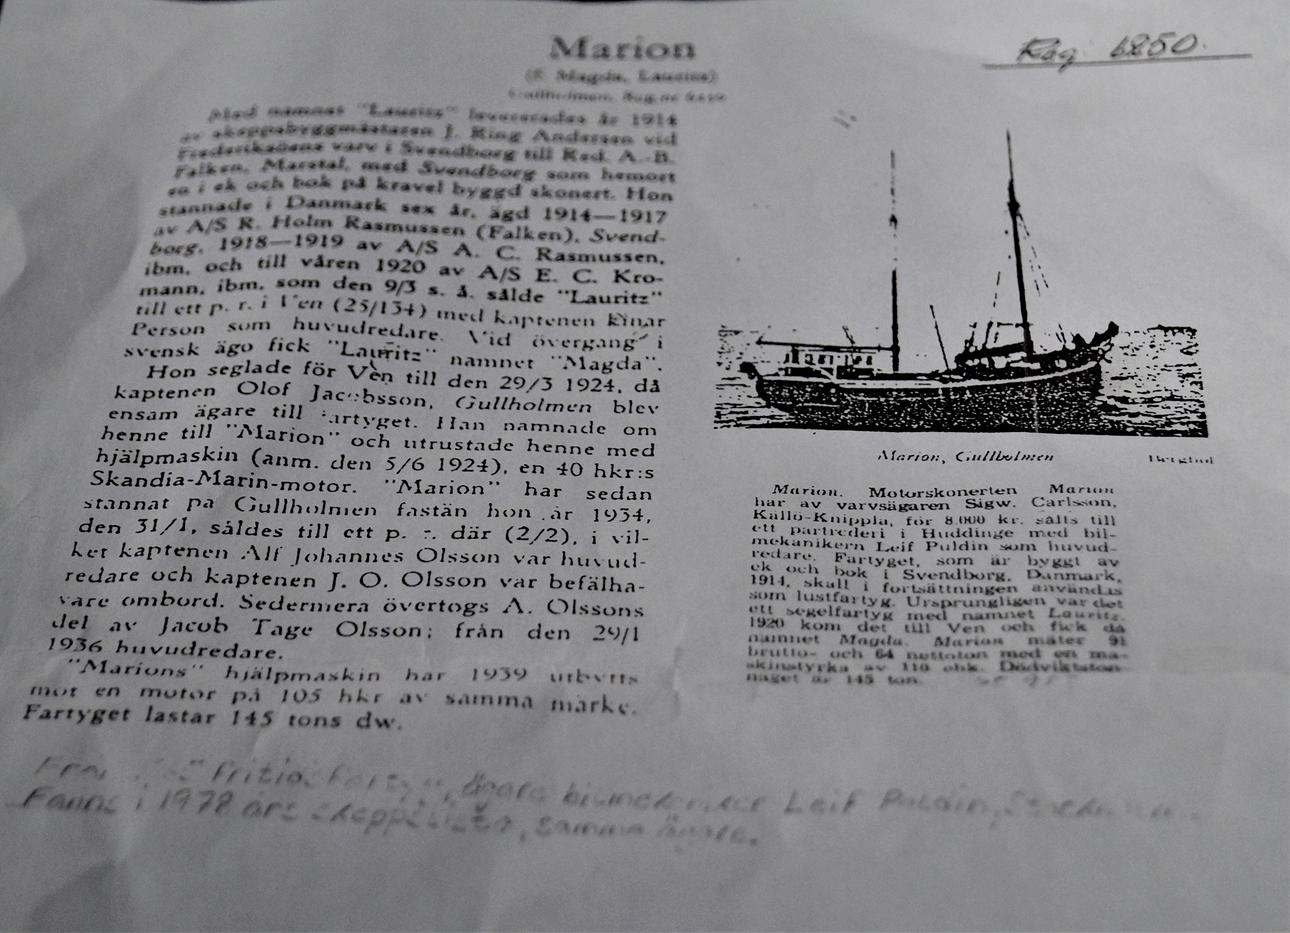 Marion
(f. Magda, Lauritz)
Gullholmen, Reg.nr
Med namnet "Lauritz" levererades år 1914
av skeppsbyggmästaren J. Ring Andersen vid
Frederiksöens varv i Svendborg till Red. A.-B.
Falken, Marstal, med Svendborg som hemort
en i ek och bok på kravel byggd skonert. Hon
stannade i Danmark sex år, ägd 1914—1917
av A/S R. Holm Rasmussen (Falken), Svend-
borg, 1918—1919 av A/S A. C. Rasmussen,
ibm, och till våren 1920 av A/S E. C. Kro-
mann, ibm, som den 9/3 s. å. sålde "Lauritz"
till ett p. r. i Ven (25/134) med kaptenen Einar
Person som huvudredare. Vid övergång i
svensk ägo fick "Lauritz" namnet "Magda".
Hon seglade för Ven till den 29/3 1924, då
kaptenen Olof Jacobsson, Gullholmen blev
ensam ägare till fartyget. Han namnade om
henne till "Marion" och utrustade henne med
hjälpmaskin (anm. den 5/6 1924), en 40 hkr:s
Skandia-Marin-motor. "Marion" har sedan
stannat på Gullholmen fastän hon år 1934,
den 31/1, såldes till ett p. r. där (2/2), i vil-
ket kaptenen Alf Johannes Olsson var huvud-
redare och kaptenen J. O. Olsson var befälha-
vare ombord. Sedermera övertogs A. Olssons
del av Jacob Tage Olsson; från den 29/1
1936 huvudredare.
"Marions" hjälpmaskin har 1939 utbytts
mot en motor på 105 hkr av samma märke.
Fartyget lastar 145 tons dw.
Reg 6250.
Marion, Gullholmen
Marion. Motorskonerten Marion
har av varvsägaren Sigw. Carlsson,
Källö-Knippla, för 8.000 kr. sålts till
ett partrederi i Huddinge med bil-
mekanikern Leif Puldin som huvud-
redare. Fartyget, som är byggt av
ek och bok i Svendborg, Danmark,
1914, skall i fortsättningen användas
som lustfartyg. Ursprungligen var det
ett segelfartyg med namnet Lauritz.
1920 kom det till Ven och fick då
namnet Magda. Marion mäter 91
brutto- och 64 nettoton med en ma-
skinstyrka av 110 ehk. Dödviktston-
naget är 145 ton.
ägare Leif Puldin,
Fanns i 1978 års skeppslista, samma ägare.